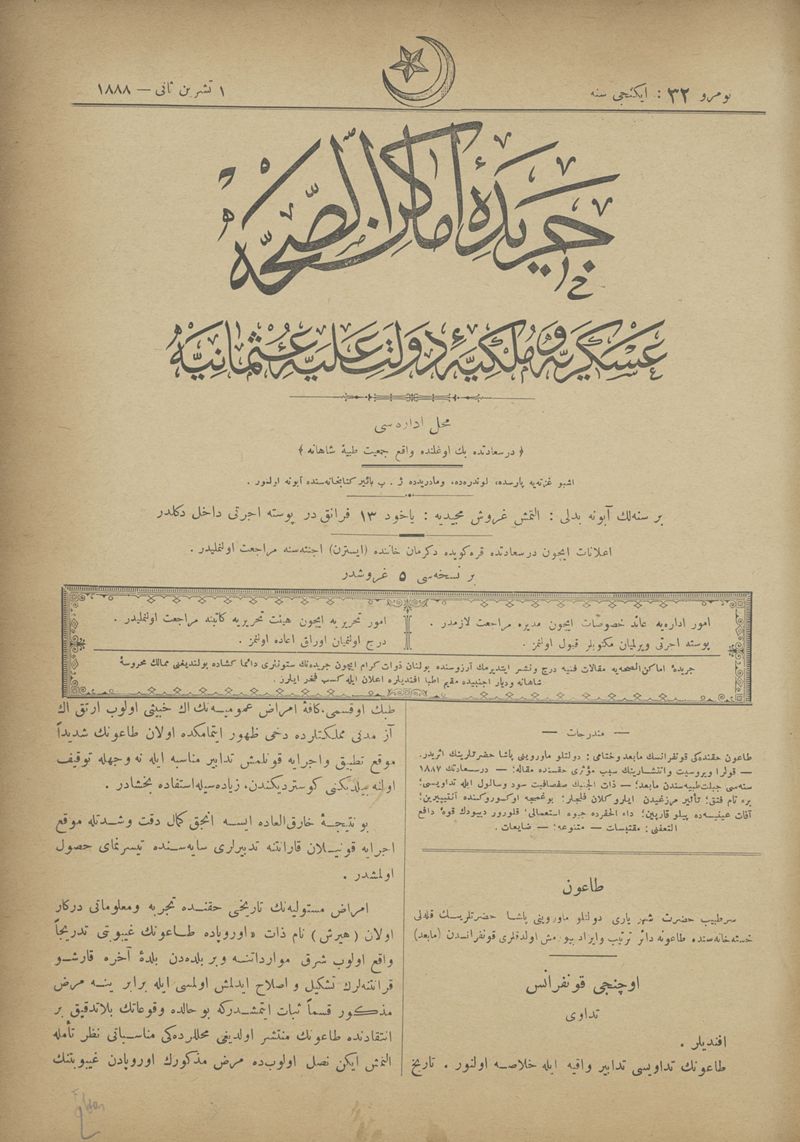 نومرو ٣٢ : ایکنجی سنه
١ تشرین ثانی — ١٨٨٨
جریدۀ اماکن الصحه
عسکریه و ملکیۀ دولت علیۀ عثمانیه
محل اداره سی
﴿ درسعادتده بك اوغلنده واقع جمعیت طبیۀ شاهانه ﴾
اشبو غزته یه پارسده، لوندره ده، ومادریدده ژ . ب بائیر کتابخانه سنده آبونه اولنور .
بر سنه لك آبونه بدلی : التمش غروش مجیدیه : یاخود ١٣ فرانق در پوسته اجرتی داخل دکلدر
اعلانات ایچون درسعادتده قره کویده دکرمان خاننده (ایسترن) اجنته سنه مراجعت اولنملیدر .
بر نسخه سی ٥ غروشدر
امور اداریه یه عائد خصوصات ایچون مدیره مراجعت لازمدر .
پوسته اجرتی ویرلمیان مکتوبلر قبول اولنمز .
امور تحریریه ایچون هیئت تحریریه کاتبنه مراجعت اولنملیدر .
درج اولنمیان اوراق اعاده اولنمز .
جریدۀ اماکن الصحه یه مقالات فنیه درج ونشر ایتدیرمك آرزوسنده بولنان ذوات کرام ایچون جریده نك ستونلری دائما کشاده بولندیغنی ممالك محروسۀ
شاهانه ودیار اجنبیه ده مقیم اطبا افندیلره اعلان ایله کسب فخر ایلرز .
— مندرجات —
طاعون حقنده کی قونفرانسك مابعد وختامی : دولتلو ماورویی پاشا حضرتلرینك اثریدر.
— قولرا ویروسیت وانتشارینك سبب مؤثری حقنده مقاله : — درسعادتك ١٨٨٧
سنه سی جبلت طبیه سندن مابعد : — ذات الجنبك صفصافیت سود وسالول ایله تداویسی؛
بره تام فتق؛ تأثیر مرغیدن ایلرو کلان فلجلر؛ بوغمجه اوکسوروکنده آنتیپیرین؛
آفات عینیه ده پیلو قارپین؛ داء الحفرده جیوه استعمالی؛ قلورور دیبودك قوۀ دافع
التعفنی؛ مقتبسات — متنوعه : — ضایعات .
طاعون
سرطبیب حضرت شهریاری دولتلو ماورویی پاشا حضرتلرینك قله لی
خسته خانه سنده طاعونه دائر ترتیب وایراد بیورمش اولدقلری قونفرانسدن (مابعد)
اوچنجی قونفرانس
تداوی
افندیلر .
طاعونك تداویسی تدابیر واقیه ایله خلاصه اولنور . تاریخ
طبك اوقسمی، کافۀ امراض عمومیه نك اك خبیثی اولوب ارتق اك
آز مدنی مملکتلرده دخی ظهور ایتمامکده اولان طاعونك شدیداً
موقع تطبیق واجرایه قونلمش تدابیر مناسبه ایله نه وجهله توقیف
اولنه بیلدیکنی کوستردیکندن، زیاده سیله استفاده بخشادر .
بو نتیجۀ خارق العاده ایسه انجق کمال دقت وشدتله موقع
اجرایه قونیلان قارانتنه تدبیرلری سایه سنده تیسرنمای حصول
اولمشدر .
امراض مستولیه نك تاریخی حقنده تجربه ومعلوماتی درکار
اولان (هیرش) نام ذات « اوروپاده طاعونك غیبوبتی تدریجاً
واقع اولوب شرق مواردانه وبر بلده دن بلدۀ آخره قارشو
قرانتنه لرك تشکیل و اصلاح ایدلمش اولمسی ایله برابر ینه مرض
مذکور قسماً ثبات ایتمشدرکه بو حالده وقوعاتك بلاتدقیق بر
انتقادنده طاعونك منتشر اولدیغی محللرده کی مناسباتی نظر تأمله
النمش ایکن نصل اولوب ده مرض مذکورك اوروپادن غیبوبتنك